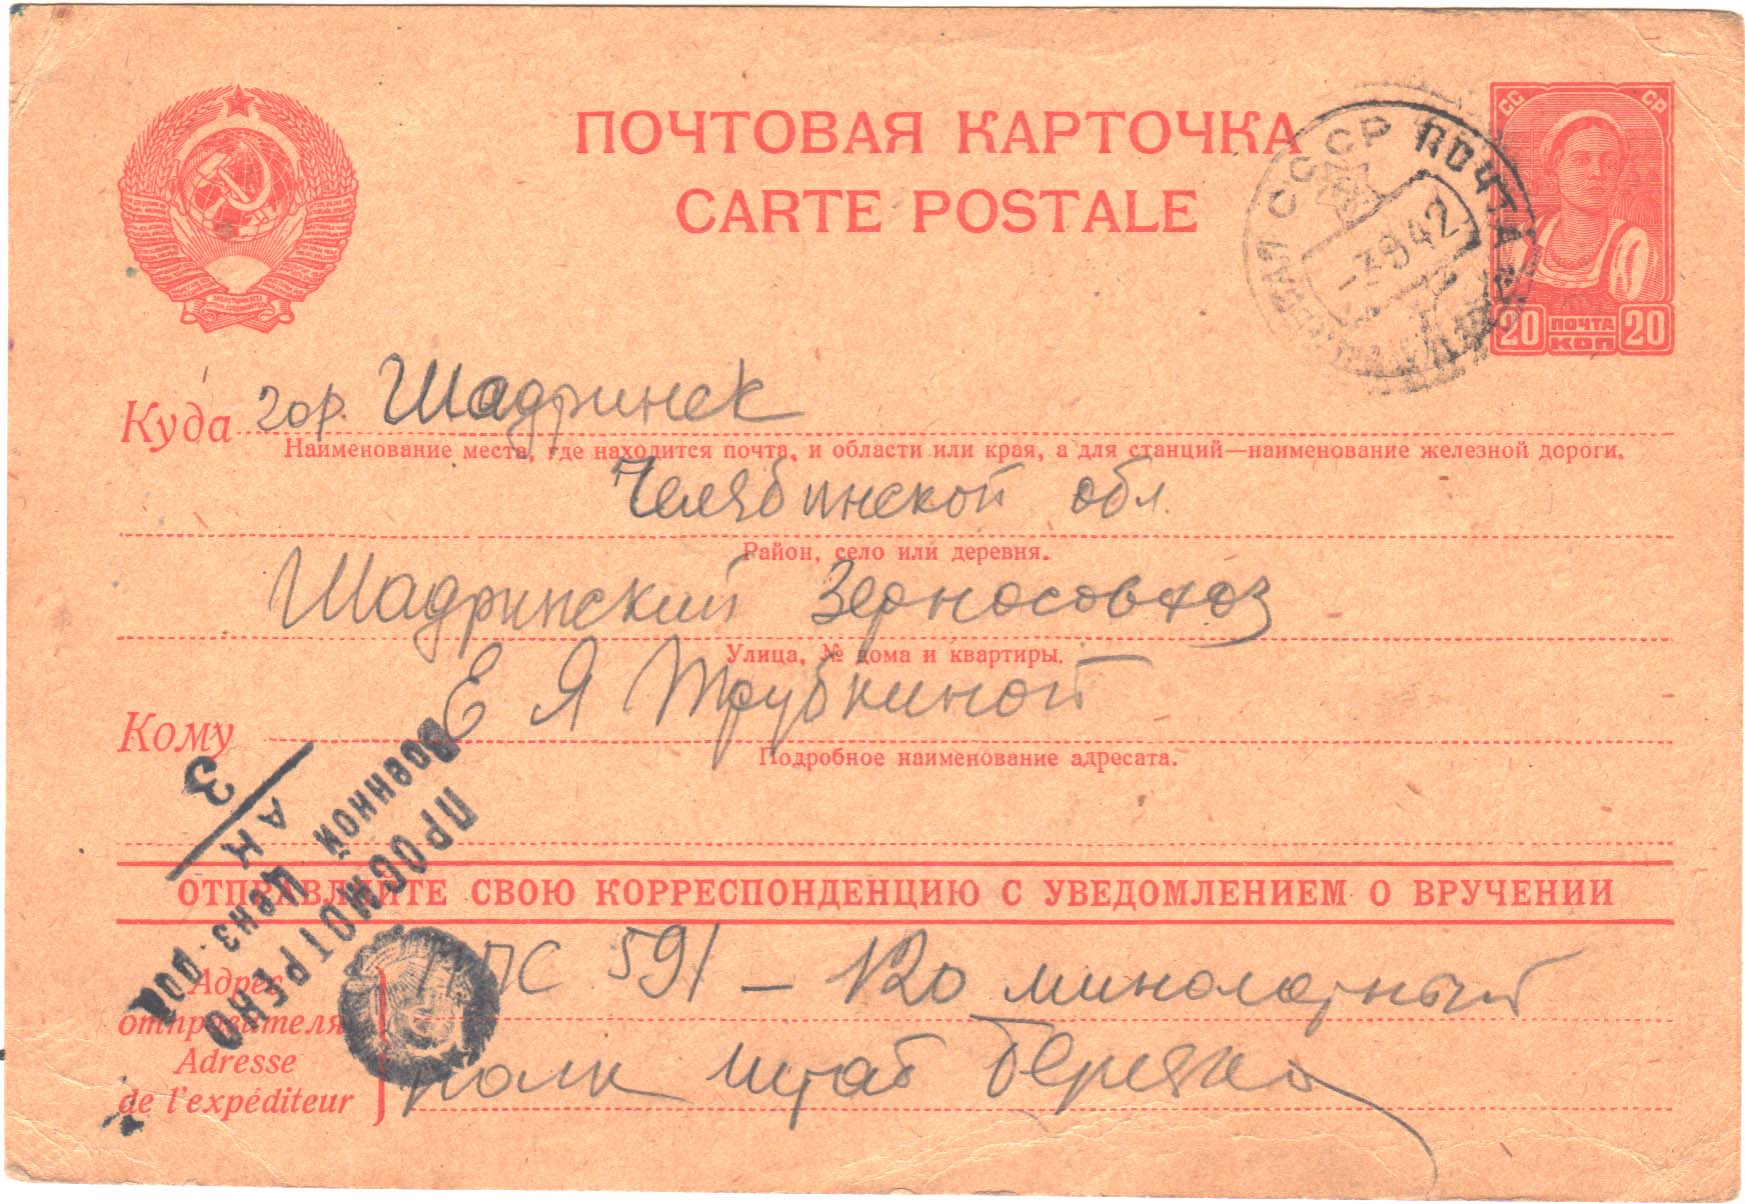 ПОЧТОВАЯ КАРТОЧКА
CARTE POSTALE
СССР ПОЧТА
-3 9 42
СС СР
20 ПОЧТА 20
КОП
Куда гор. Шадринск
Наименование места, где находится почта, и области или края, а для станций—наименование железной дороги.
Челябинской обл.
Район, село или деревня.
Шадринский Зерносовхоз
Улица, № дома и квартиры.
Кому Е Я Трубкиной
Подробное наименование адресата.
ПРОСМОТРЕНО
Военной Ценз
АК
3
ОТПРАВЛЯЙТЕ СВОЮ КОРРЕСПОНДЕНЦИЮ С УВЕДОМЛЕНИЕМ О ВРУЧЕНИИ
Адрес отправителя
Adresse de l'expéditeur
ППС 591 — 120 минометный
полк штаб